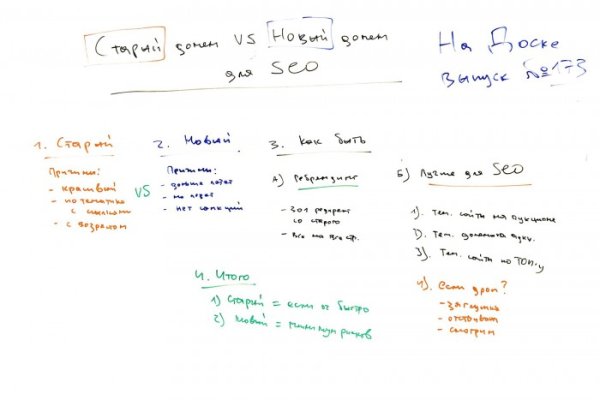 Старый домен VS Новый домен
для SEO
На Доске
выпуск №173
1. Старый
Причины:
- красивый
- по тематике
с ссылками
- с возрастом
VS
2. Новый
Причины:
- дольше
- нет санкций
3. Как быть
А) Ребрендинг
- 301 редирект
со старого
- все на все стр.
Б) Лучше для SEO
1). Тем. сайты на аукционе
2). Тем. домены аукц.
3). Тем. сайты по ТОП-у
4). если дроп?
- заглушка
- отстойник
- смотрим
4. Итого
1) Старый = если ок быстро
2) Новый = минимум рисков